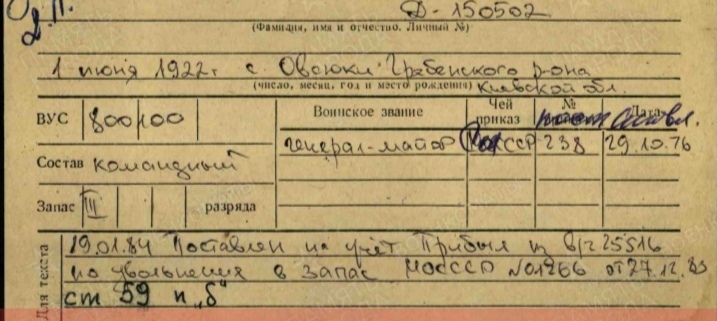 Д-150502
(Фамилия, имя и отчество. Личный №)
1 июня 1922 г с. Овсюки Гребенского р-она
(число, месяц, год и место рождения) Киевской обл.
ВУС 800100 Воинское звание Чей приказ № Дата
генерал-майор МОСССР 238 29.10.76
Состав командный
Запас III разряда
Для текста
19.01.84 Поставлен на учёт Прибыл из в/ч 25516
по увольнении в запас МОСССР №01266 от 27.12.83
ст 59 п „б"